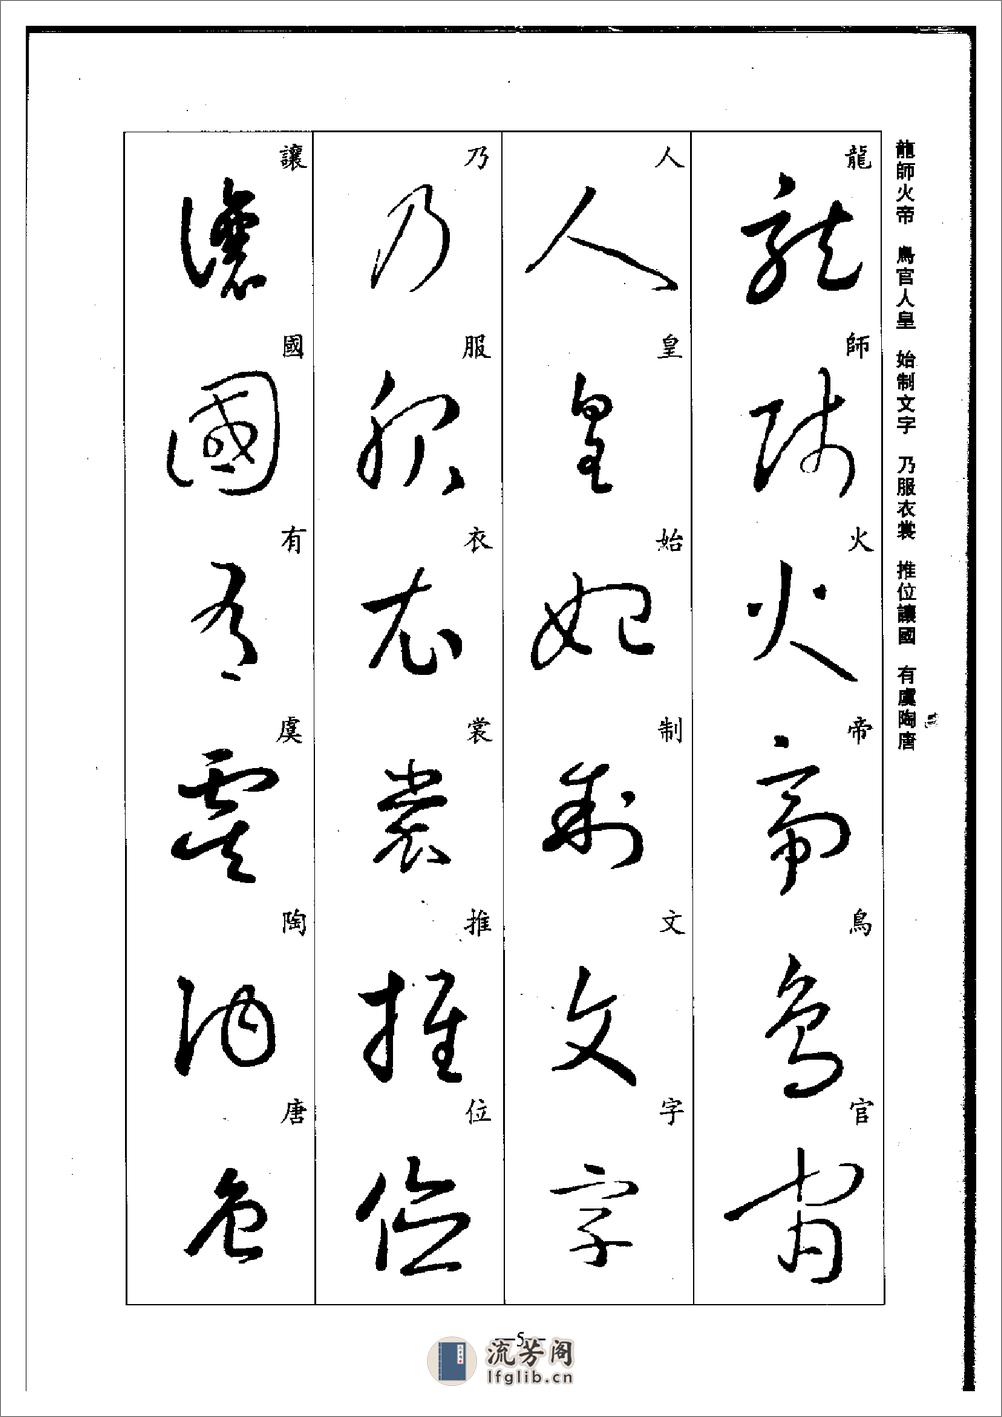 龍師火帝 鳥官人皇 始制文字 乃服衣裳 推位讓國 有虞陶唐
龍師火帝鳥官
人皇始制文字
乃服衣裳推位
讓國有虞陶唐
5
流芳阁
lfglib.cn